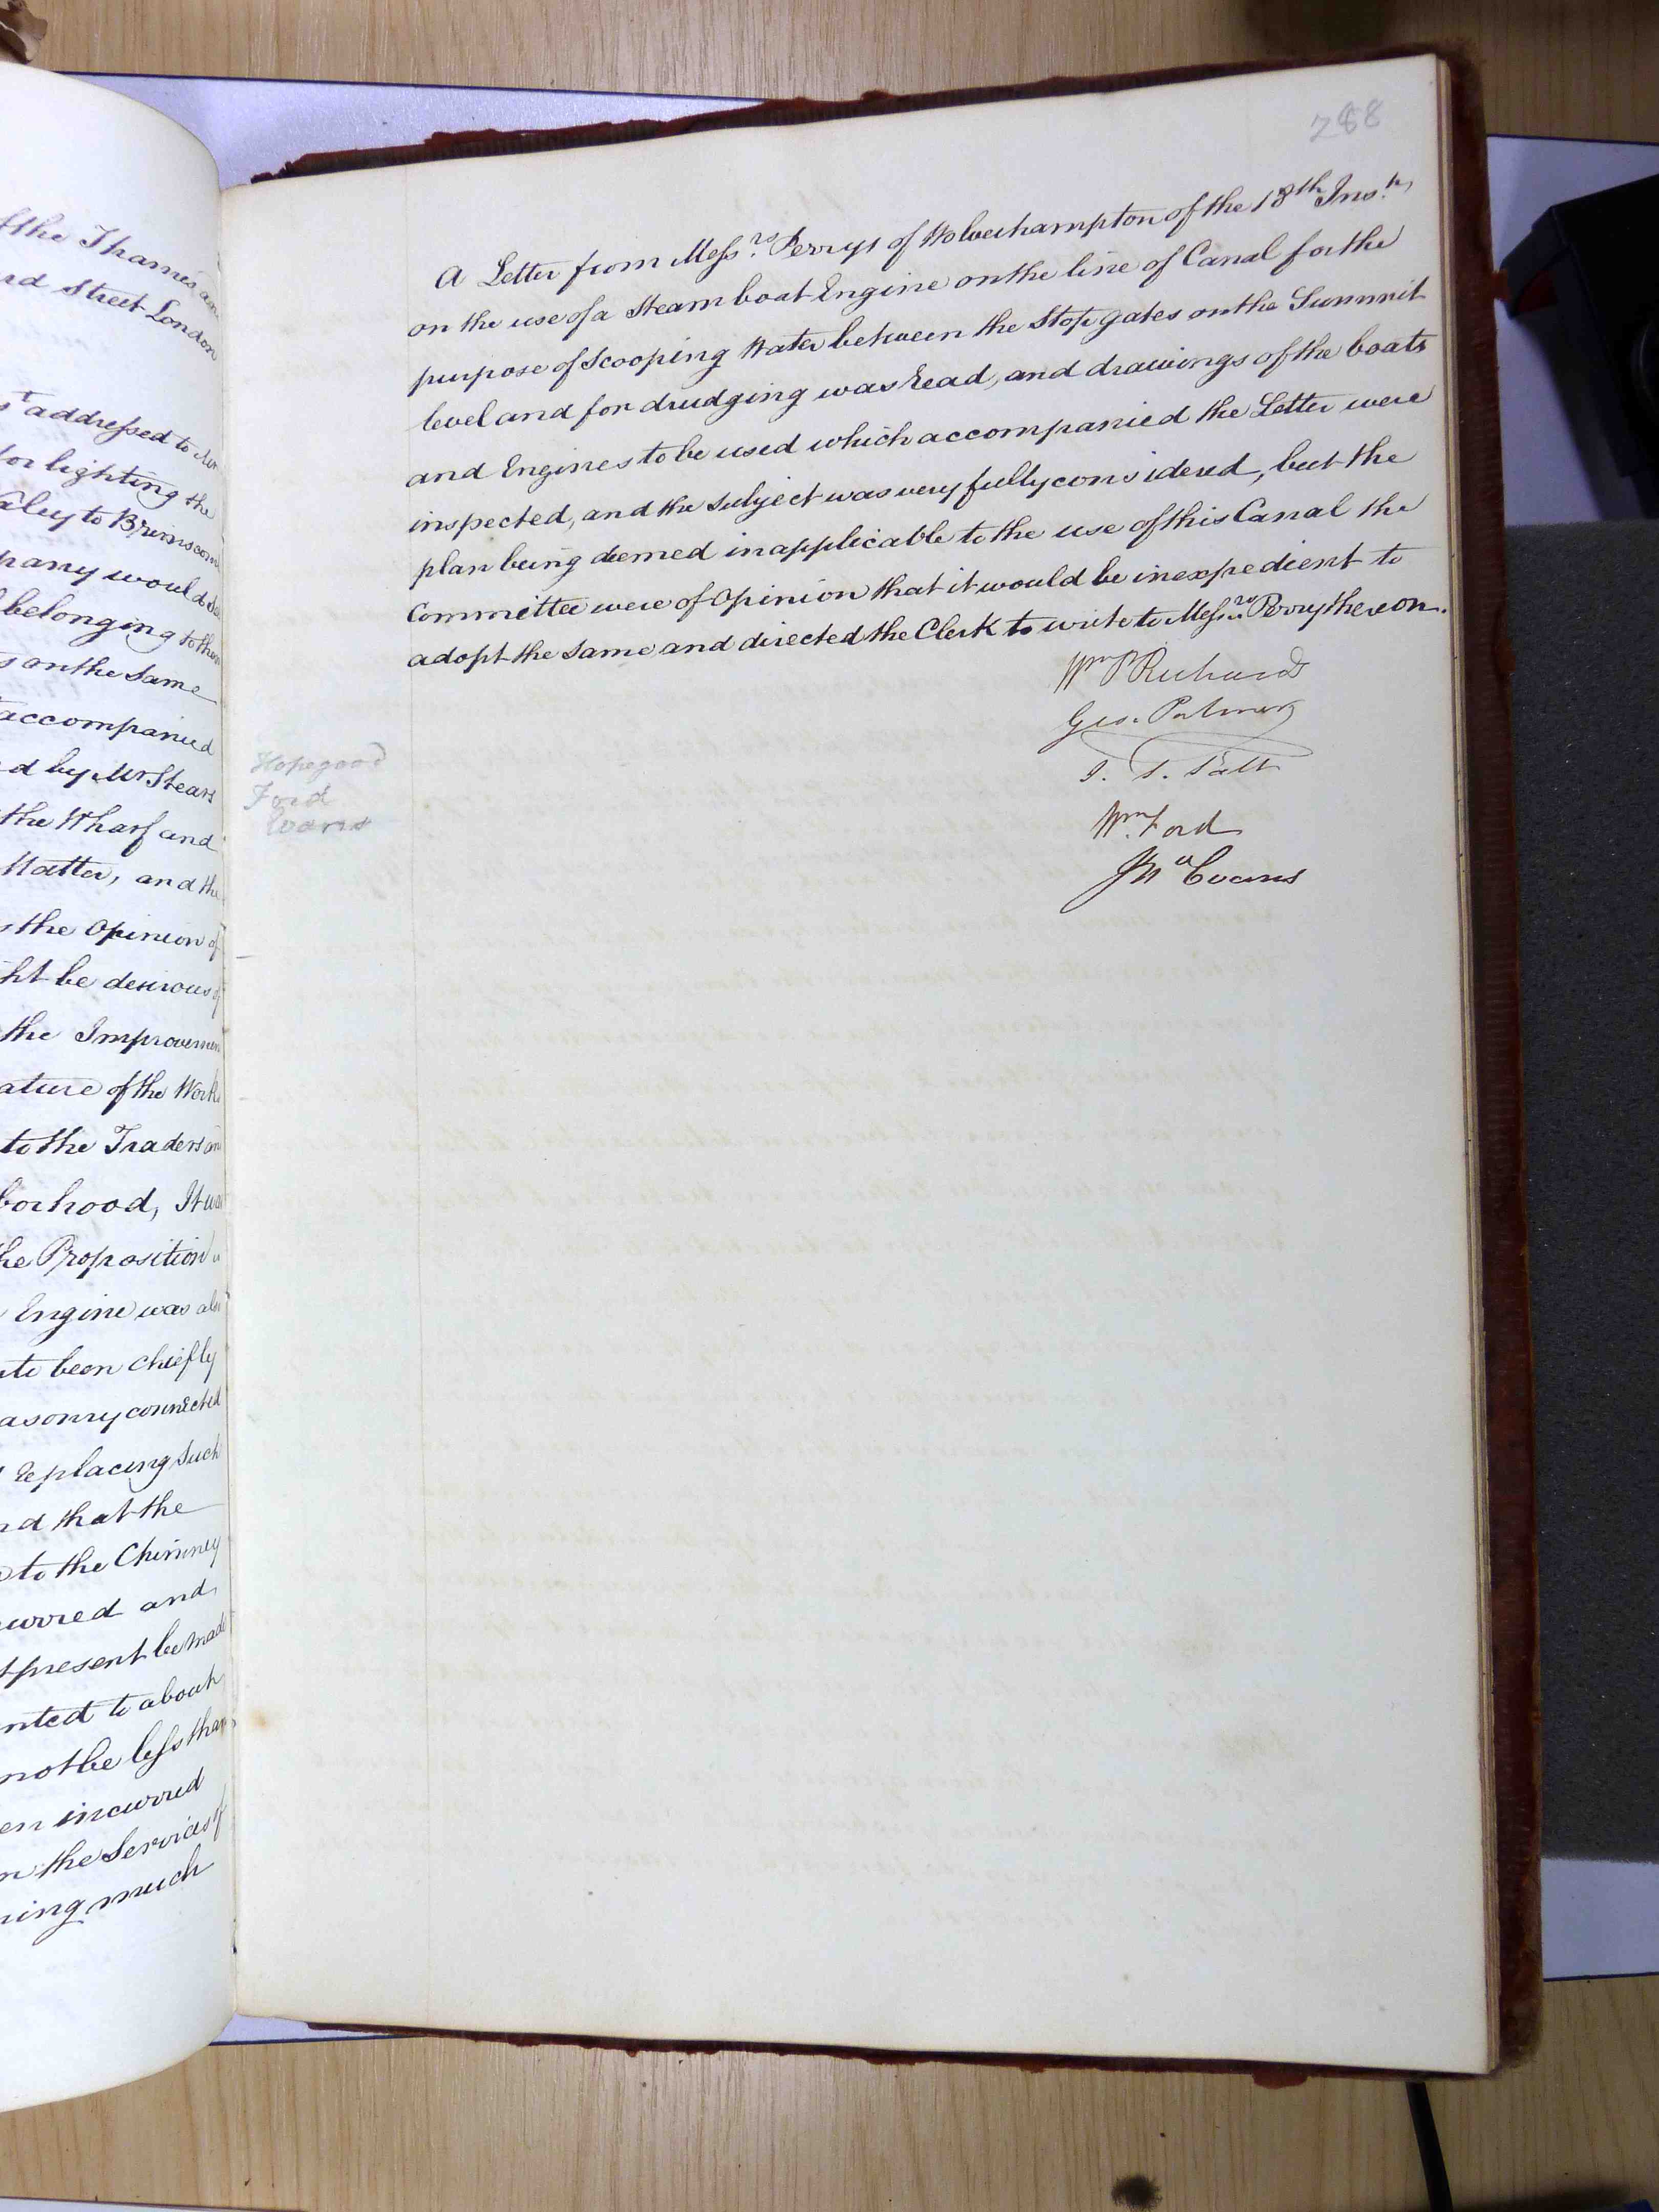 f the Thames an
rd Street London
st addressed to Mr
for lighting the
aley to Brimscom
pany would
belonging to them
s on the Same
accompanied
d by Mr Stears
the Wharf and
Matter, and the
s the Opinion of
ht be desirous of
the Improvemen
ature of the Works
to the Traders an
borhood, It wa
he Proposition
Engine was als
te been chiefly
asonry connected
replacing Such
nd that the
to the Chimney
urred and
t present be made
nted to about
not be less than
en incurred
n the Services of
ning much
288
A Letter from Messrs. Perrys of Wolverhampton of the 18th Inst.,
on the use of a Steam boat Engine on the line of Canal for the
purpose of Scooping Water between the Stop gates on the Summit
level and for drudging was read, and drawings of the boats
and Engines to be used which accompanied the Letter were
inspected, and the subject was very fully considered, but the
plan being deemed inapplicable to the use of this Canal the
Committee were of Opinion that it would be inexpedient to
adopt the same and directed the Clerk to write to Messrs. Perry thereon.
Wm P Richards
Geo. Palmer
T. S. Salt
Wm. Ford
Evans
Hopegood
Ford
Evans